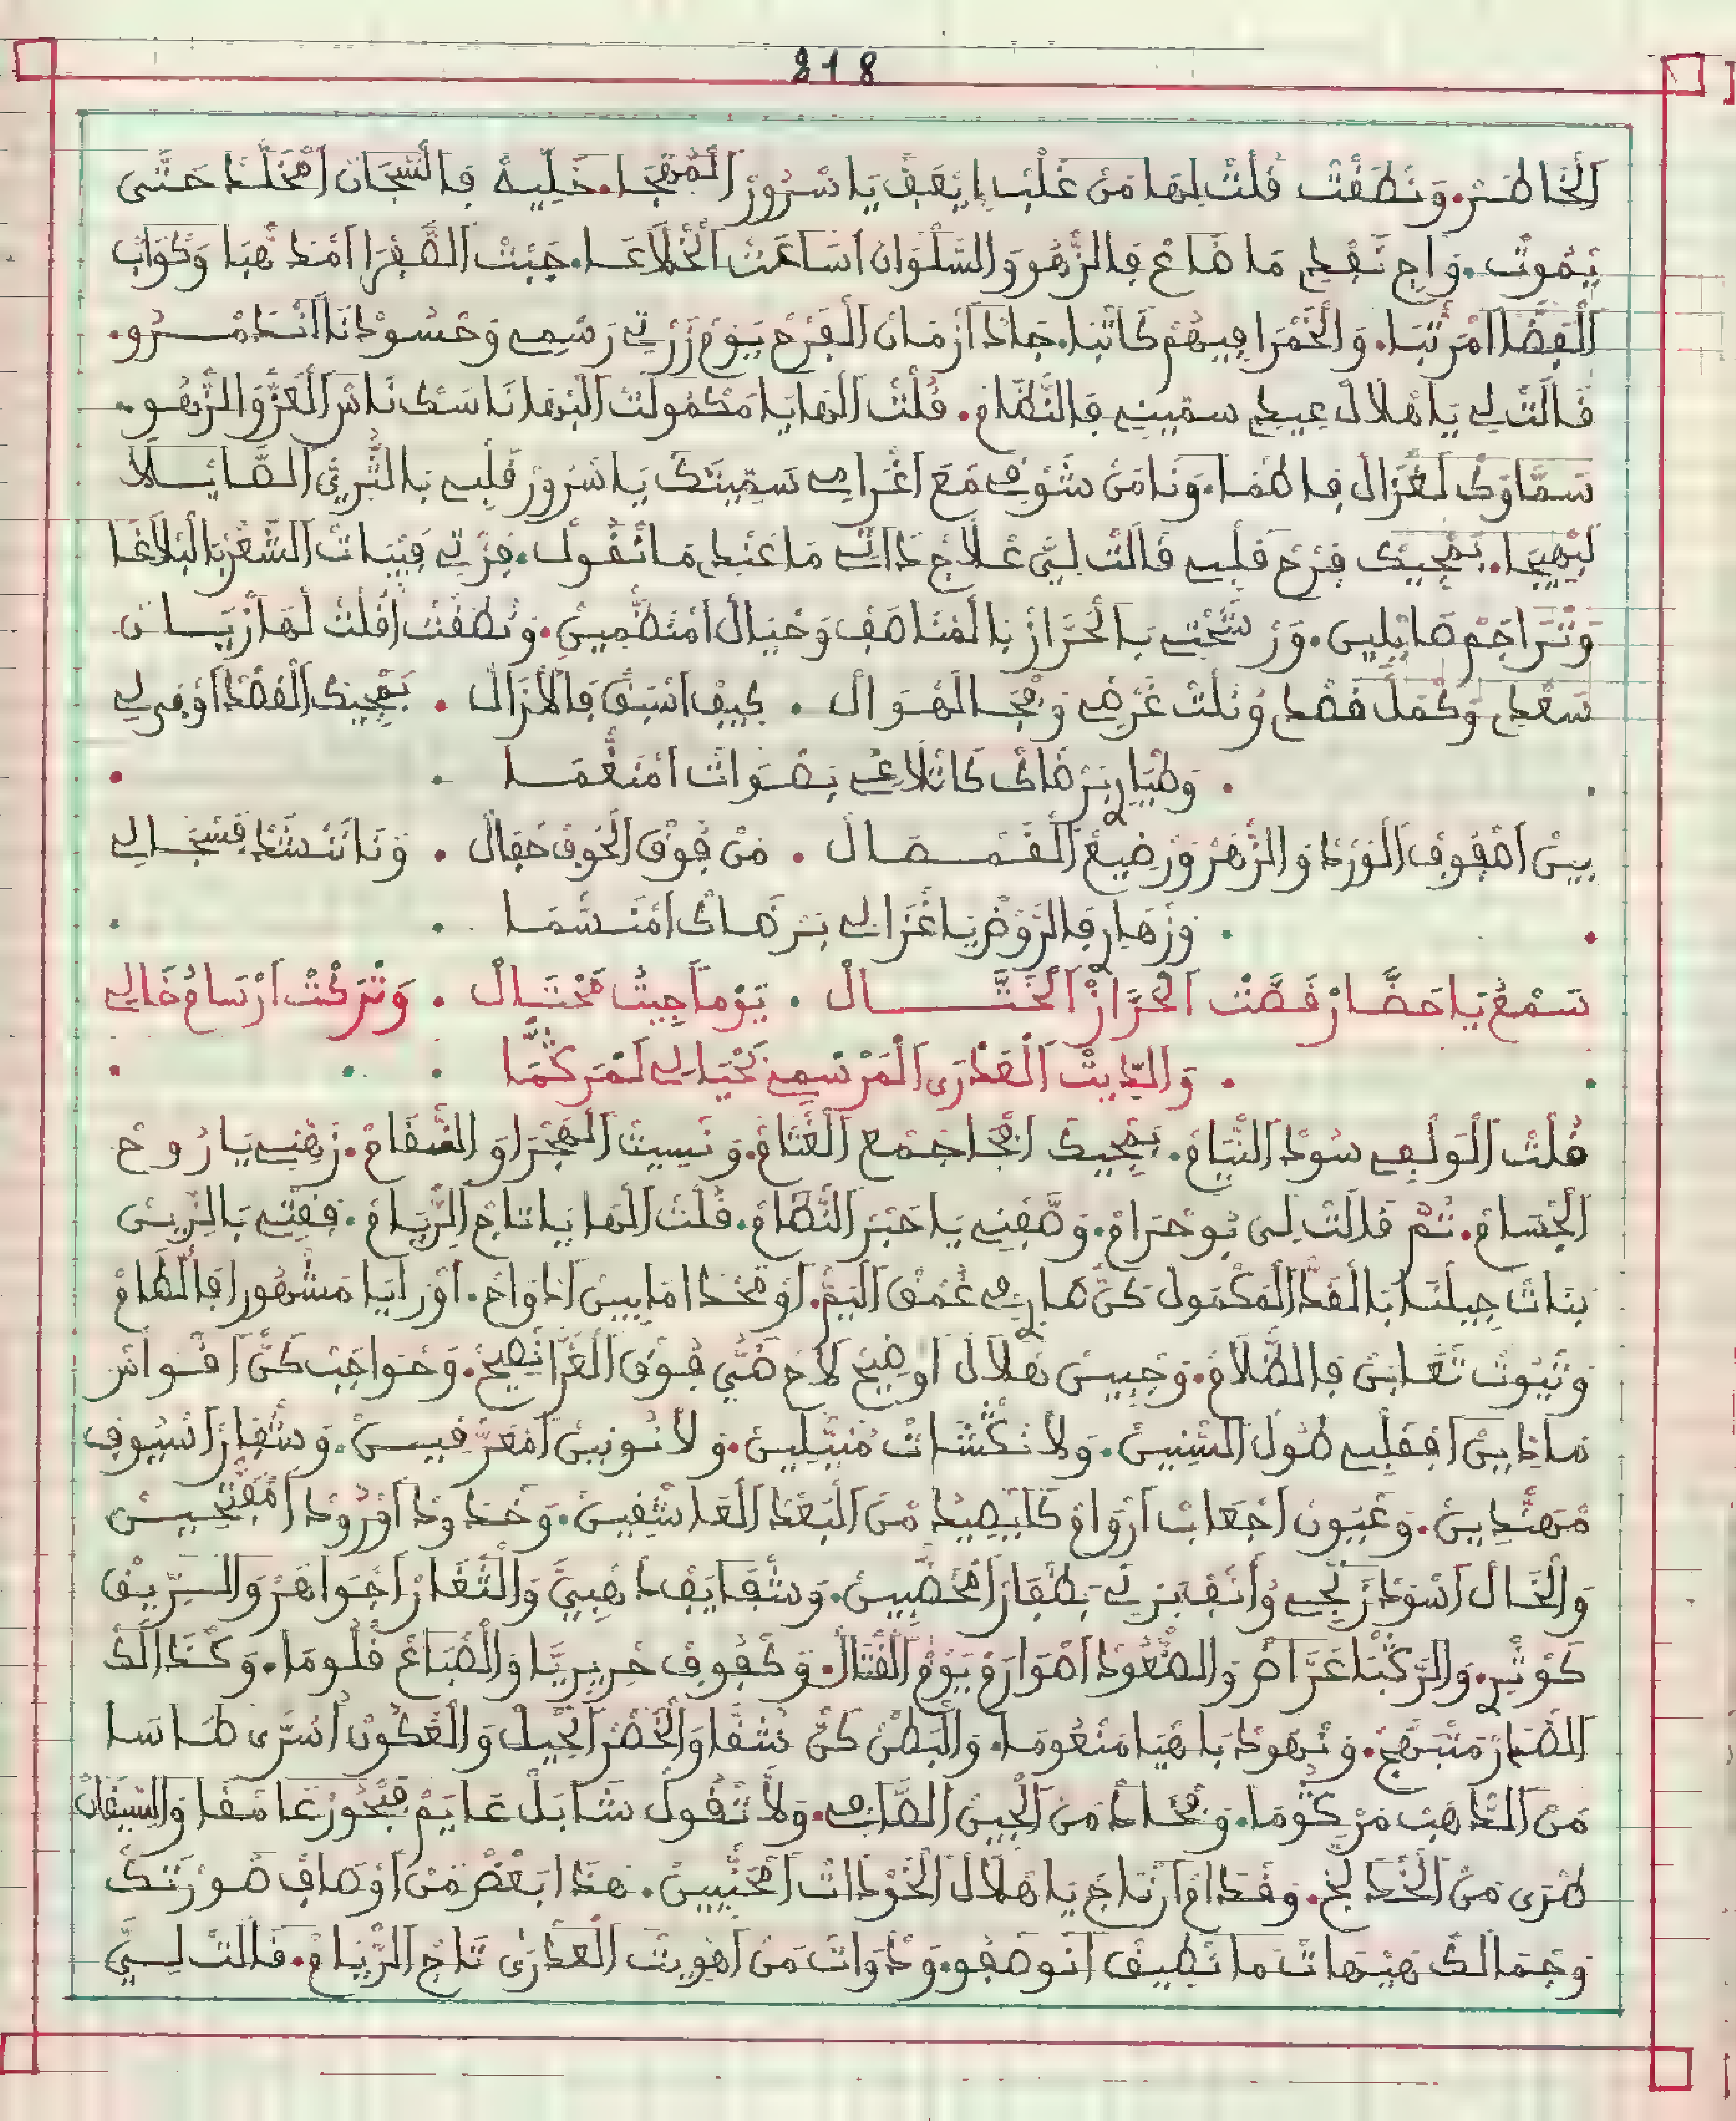 218
الخاطر. ونطقت قلت لها من غلب إيقف يا سرور المهجا. خليه فالسجان امخلد حتى
يموت. واجي نقدي ما ضاع فالزهو والسلوان اساعت الخلاعا. جبت الصفرا امذهبا وكواب
الفضا امرتبا. والخمرا فيهم كاتبا. جاد ازمان الفرح يوم زرتي رسمي وحسودنا انذمرو.
قالت لي يا هلال عيدي سميني فالنظام. قلت الها يا مكمولت البها ناسك ناس العز والزهو.
سماوك لغزال فاطما. ونا من شوقي مع اغرامي سميتك يا سرور قلبي بالتريق الصايلا
ليهيجا. بمجيك فرح قلبي قالت لي علاج ذاتي ما عندي ما نقول. فزتي فبيات الشعر بالبلاغا
وتراجم صايلين. ورشختي بالحراز بالمناصف وحيال امنظمين. ونطقت اقلت لها ازيان
سعدي وكمل قصدي ونلت غرضي ومجا الهوال . كيف اسبق فالازال . بمجيك القصد اوفى لي
. وطيار برضاك كاتلاغي بصوات امنغما
بين اصفوف الورد والزهر ورضيع القمصال . من فوق الخوف حفال . ونا ننشد فسجالي
. وزهار فالروض يا غزالي برضاك امنسما
سمع يا حضار قصت الحراز الختال . يوما جيت محتال . وتركت ارسام خالي
. والديت العذرى المرسمي بحيالي لمركما
قلت الولفي سود النيام. بمجيك انجا جمع الغتام. ونسيت الهجرا والسقام. زهني يا روح
الجسام. ثم قالت لي بو حرام. وصفني يا حبر النظام. قلت الها يا تاج الريام. فقتي بالزين
بنات جيلنا بالقد المكمول كن صاري في غمق اليم. او نخدا ما بين ادواح. اورايا مشهورا فالطام
وتيوت تعابن فالظلام. وجبين هلال اوضيح لاح ضي فوق الغرا نصيح. وحواجب كن اقواس
ماذيين افقلبي طول السنين. ولا نكشات منيلين. ولا نونين امعرقين. وشفار اسيوف
مهندين. وعيون اجعاب ارواه كايصيد من البعد العاشقين. وخدود اورود امفتحين
والخال اسود زنجي وأنف برني بطفار امخضبين. وشفايف ذهبي والثغار اجواهر والريق
كوثر. والركبا عراض والصعود اصوارم يوم القتال. وكفوف حريريا والصباع قلوما. وكذالك
الصدر متبهج. ونهود باهيا منعوما. والبطن كن شقا والخصر انحيل والعكون اسرى طاسا
من الذهب مركوما. وفخاد من الجين الصافي. ولا تقول شابل عايم فبحور غامقا والسيقان
طرى من الخدلج. وقدام ارتاح يا هلال الخودات امحنيين. هذا بعض من اوصاف صورتك
وجمالك هيهات ما نطيف انوصفو. وذوات من اهويت العذرى تاج الريام. قالت لي